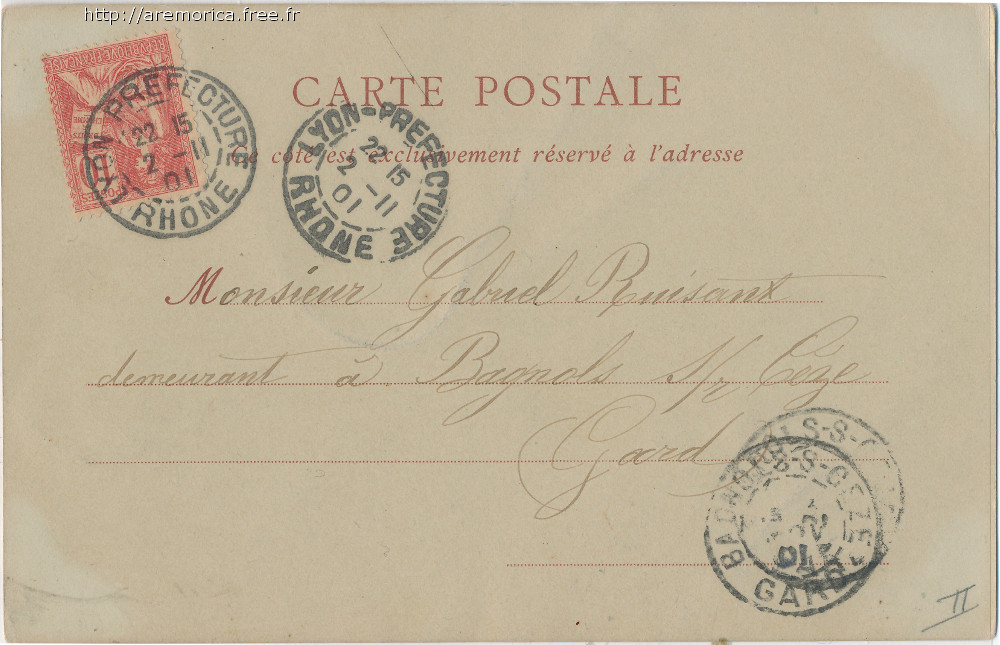 http://aremorica.free.fr
REPUBLIQUE FRANÇAISE
POSTES
LYON-PREFECTURE
22 15
2 -11
01
RHONE
LYON-PREFECTURE
22 15
2 -11
01
RHONE
CARTE POSTALE
Ce côté est exclusivement réservé à l'adresse
Monsieur Gabriel Ruisant
demeurant à Bagnols S/r Cèze
Gard
BAGNOLS-S-CEZE
01
GARD
II